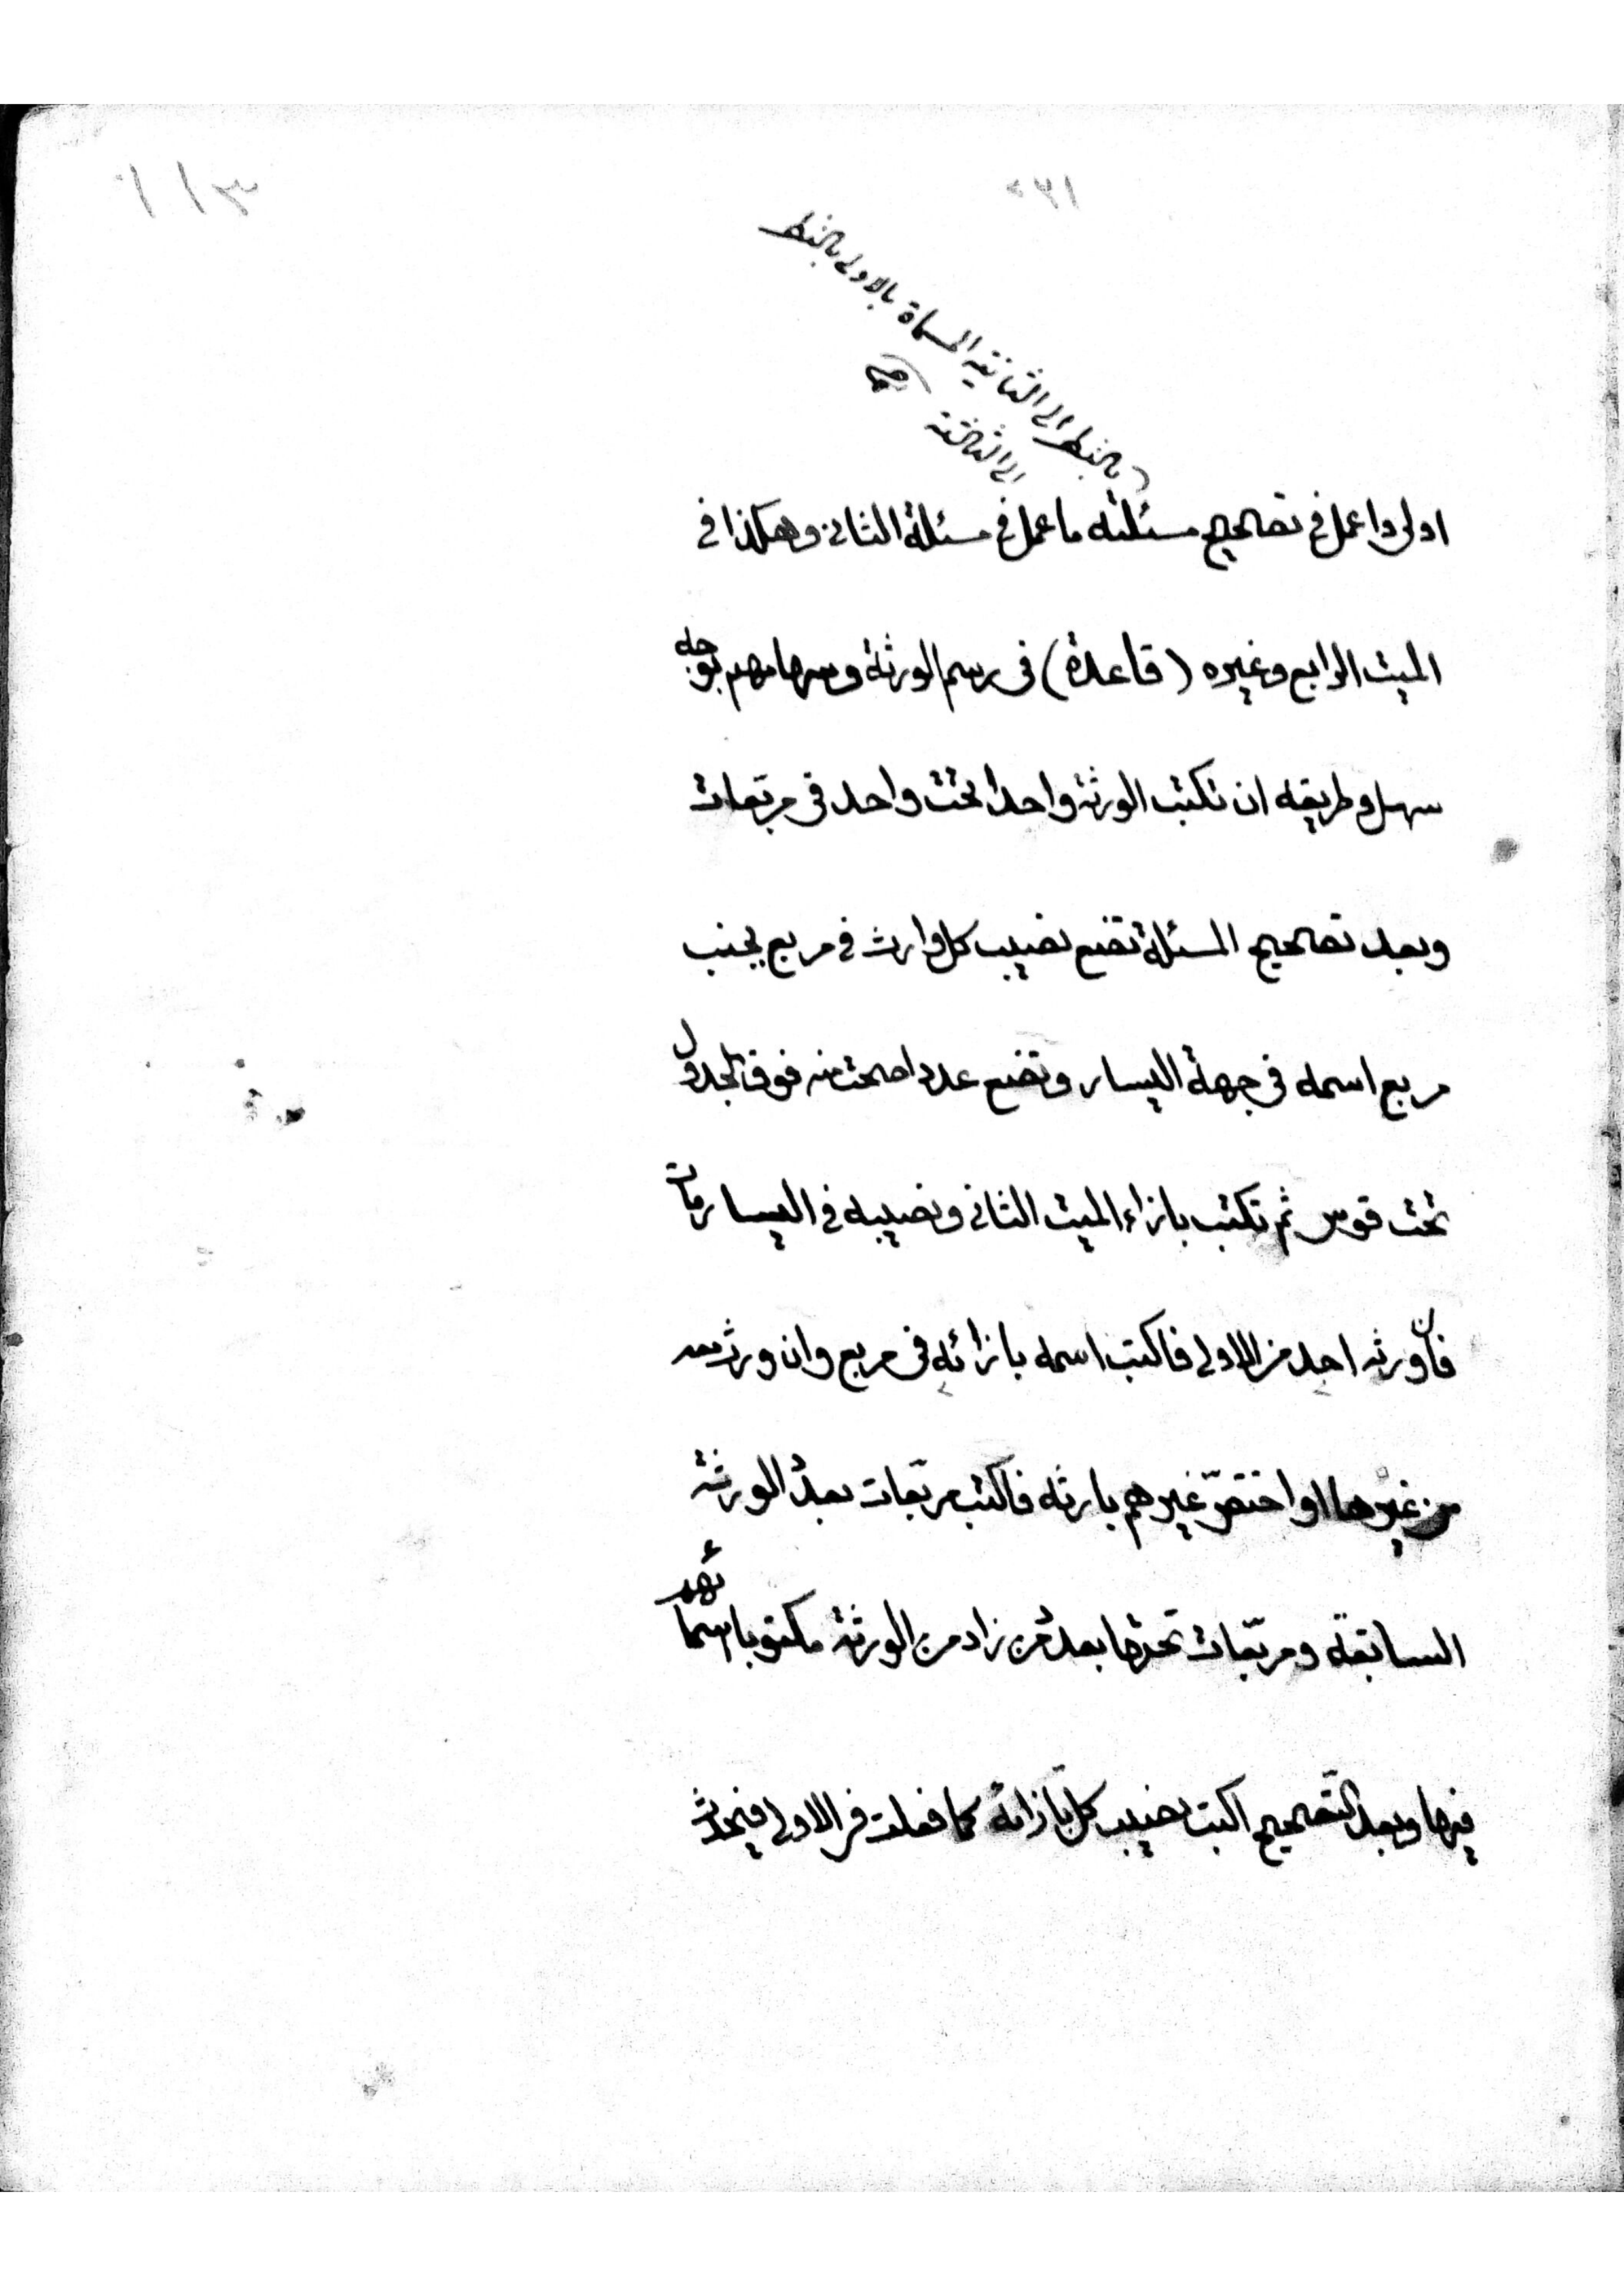 ٢٣١
بالنظر الى الثانية المسماة بالاولى بالنظر
الى الثالثة
اولى واعمل فى تصحيح مسئلته ما عمل فى مسئلة الثانى وهكذا فى
الميت الرابع وغيره (قاعدة) فى رسم الورثة وسهامهم بوجه
سهل وطريقه ان تكتب الورثة واحدا تحت واحد فى مربعات
وبعد تصحيح المسئلة تضع نصيب كل وارث فى مربع بجنب
مربع اسمه فى جهة اليسار وتضع عددا صحت منه فوق الجدول
تحت قوس ثم تكتب بازاء الميت الثانى ونصيبه فى اليسار مات
فان ورثه احد من الاولى فاكتب اسمه بازائه فى مربع وان ورث معه
من غيرها او اختصّ غيرهم بارثه فاكتب مربّعات بعدد الورثة
السابقة ومربّعات تحتها بعدد من زاد من الورثة مكتوبا اسمائهم
فيها وبعد التصحيح اكتب نصيب كل بازائه كما فعلت فى الاولى فيحدث